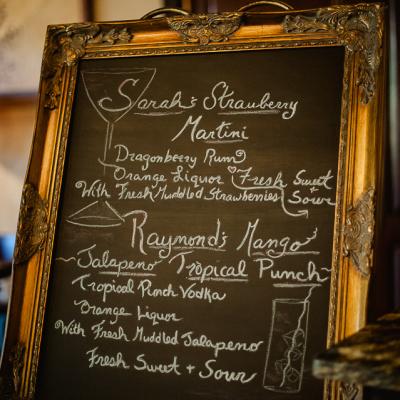 Sarah's Strawberry
Martini
Dragonberry Rum
Orange Liquor Fresh Sweet + Sour
With Fresh Muddled Strawberries
Raymond's Mango
~Jalapeno Tropical Punch~
Tropical Punch Vodka
Orange Liquor
With Fresh Muddled Jalapeno
Fresh Sweet + Sour